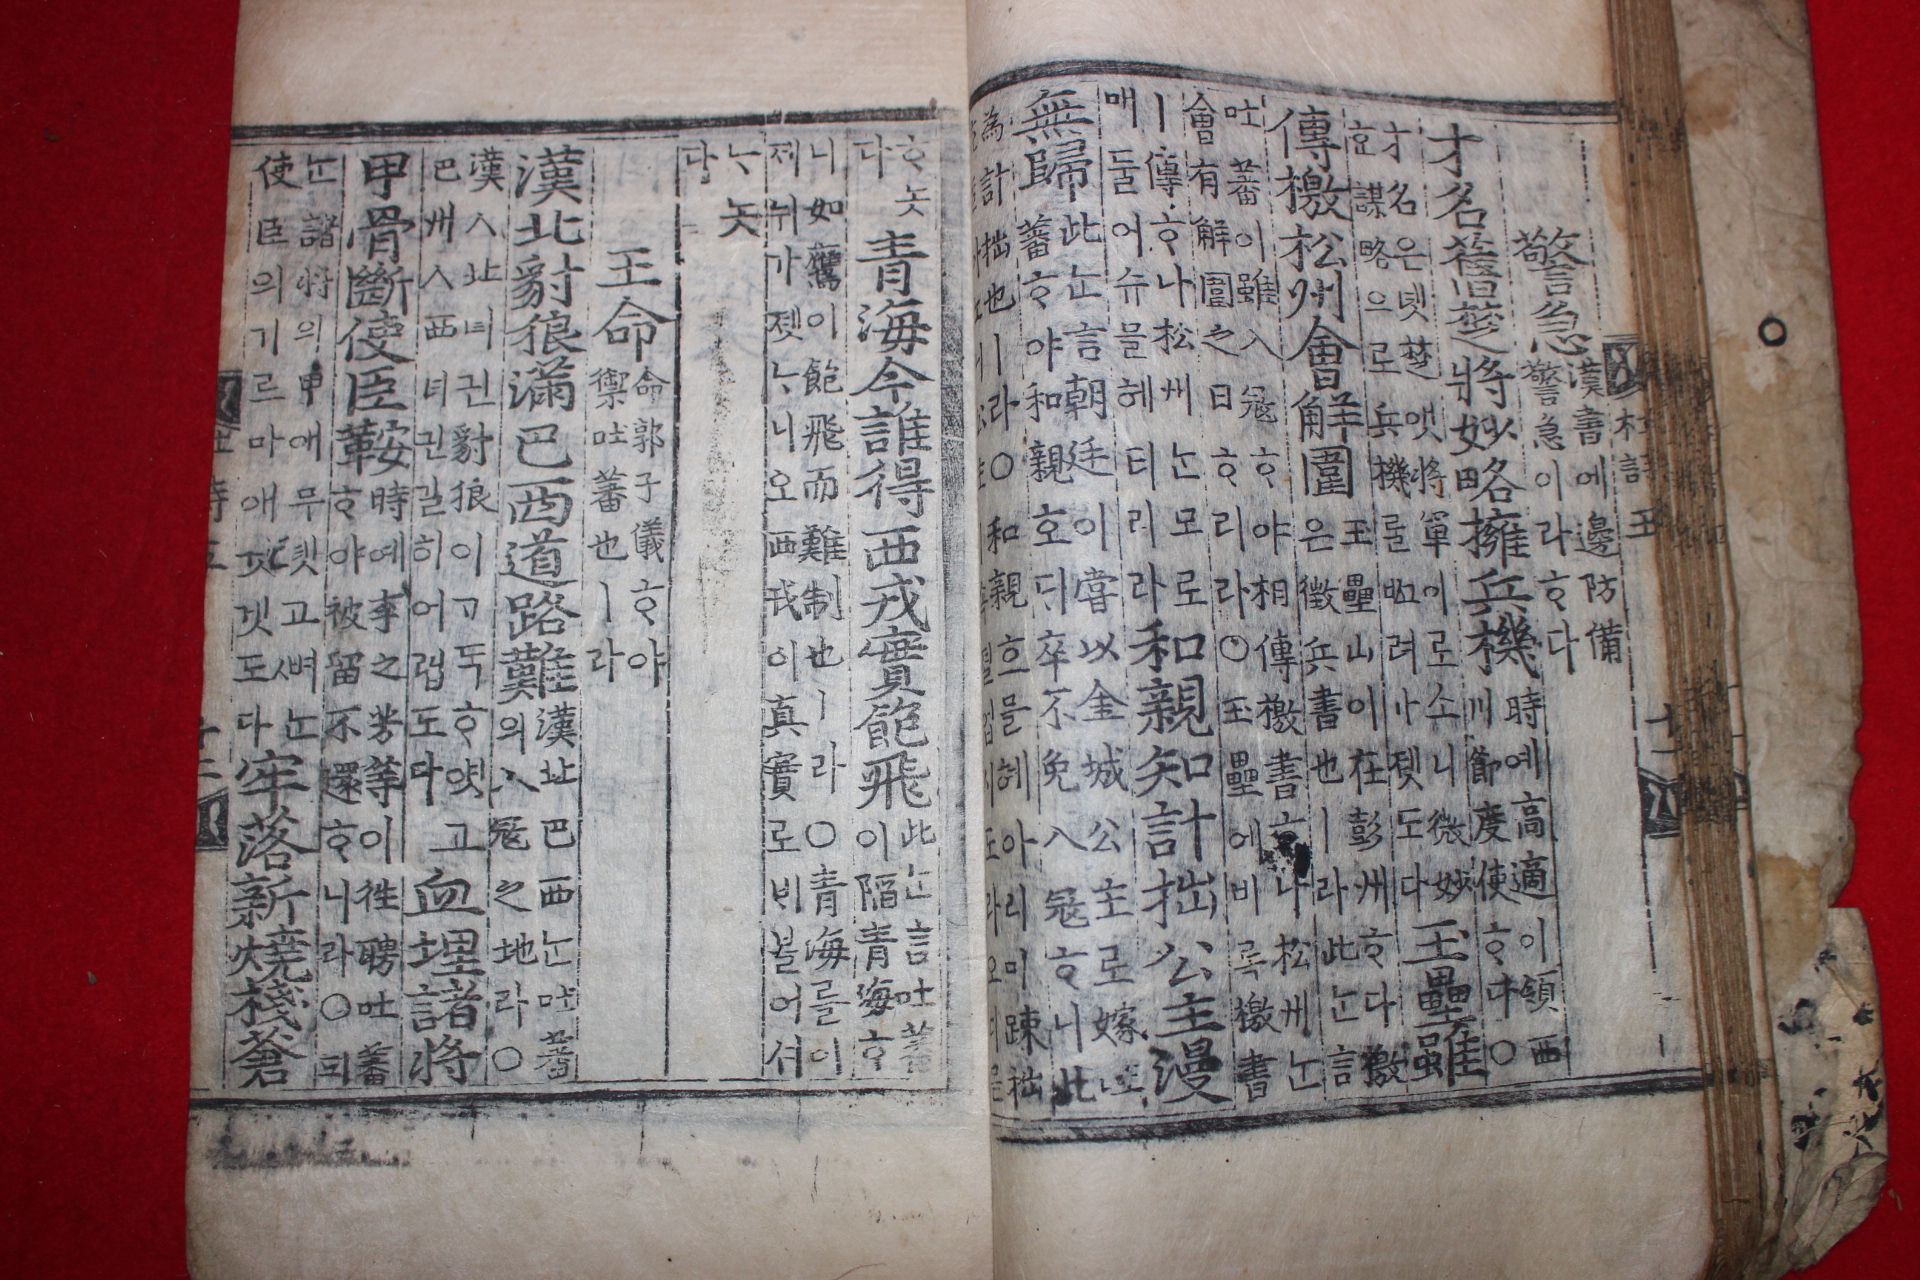 警急
漢書에邊防備
警急이라ᄒᆞ다
才名舊楚將妙略擁兵機
時예高適이領西
川節度使ᄒᆞ다○
才名은녯楚ㅅ將軍이로소니微妙
ᄒᆞᆫ謀略으로兵機ᄅᆞᆯ ᄢᅧ려가졧도다
玉壘雖
傳檄松州會解圍
玉壘山이在彭州ᄒᆞ다檄
은徵兵書也ㅣ라此ᄂᆞᆫ言
吐蕃이雖入寇ᄒᆞ야相傳檄書ᄒᆞ나松州ᄂᆞᆫ
會有解圍之日ᄒᆞ리라○玉壘에비록檄書
ㅣ傳ᄒᆞ나松州ᄂᆞᆫ모로
매둘어슈믈헤티리라
和親知計拙公主漫
無歸
此ᄂᆞᆫ言朝廷이嘗以金城公主로嫁吐
蕃ᄒᆞ야和親호ᄃᆡ卒不免入寇ᄒᆞ니此
為計拙也ㅣ라○和親호믈혜아리미踈拙
ᄒᆞ놋
다
青海今誰得西戎實飽飛
此ᄂᆞᆫ言吐蕃
이陷青海ᄒᆞ
니如鷹이飽飛而難制也ㅣ라○青海ᄅᆞᆯ이
제뉘가졧ᄂᆞ니오西戎이真實로ᄇᆡ블어셔
ᄂᆞ놋
다
王命
命郭子儀ᄒᆞ야
禦吐蕃也ㅣ라
漢北豺狼滿巴西道路難
漢北巴西ᄂᆞᆫ吐蕃
의入寇之地라○
漢ㅅ北녀긘豺狼이ᄀᆞᄃᆞᆨᄒᆞ얏고
巴州ㅅ西녀긘길히어렵도다
血埋諸將
甲骨斷使臣鞍
時예李之芳等이往聘吐蕃
ᄒᆞ야被留不還ᄒᆞ니라○피
ᄂᆞᆫ諸將의甲애무텻고ᄲᅧᄂᆞᆫ
使臣의기르마애것겟도다
牢落新燒棧蒼